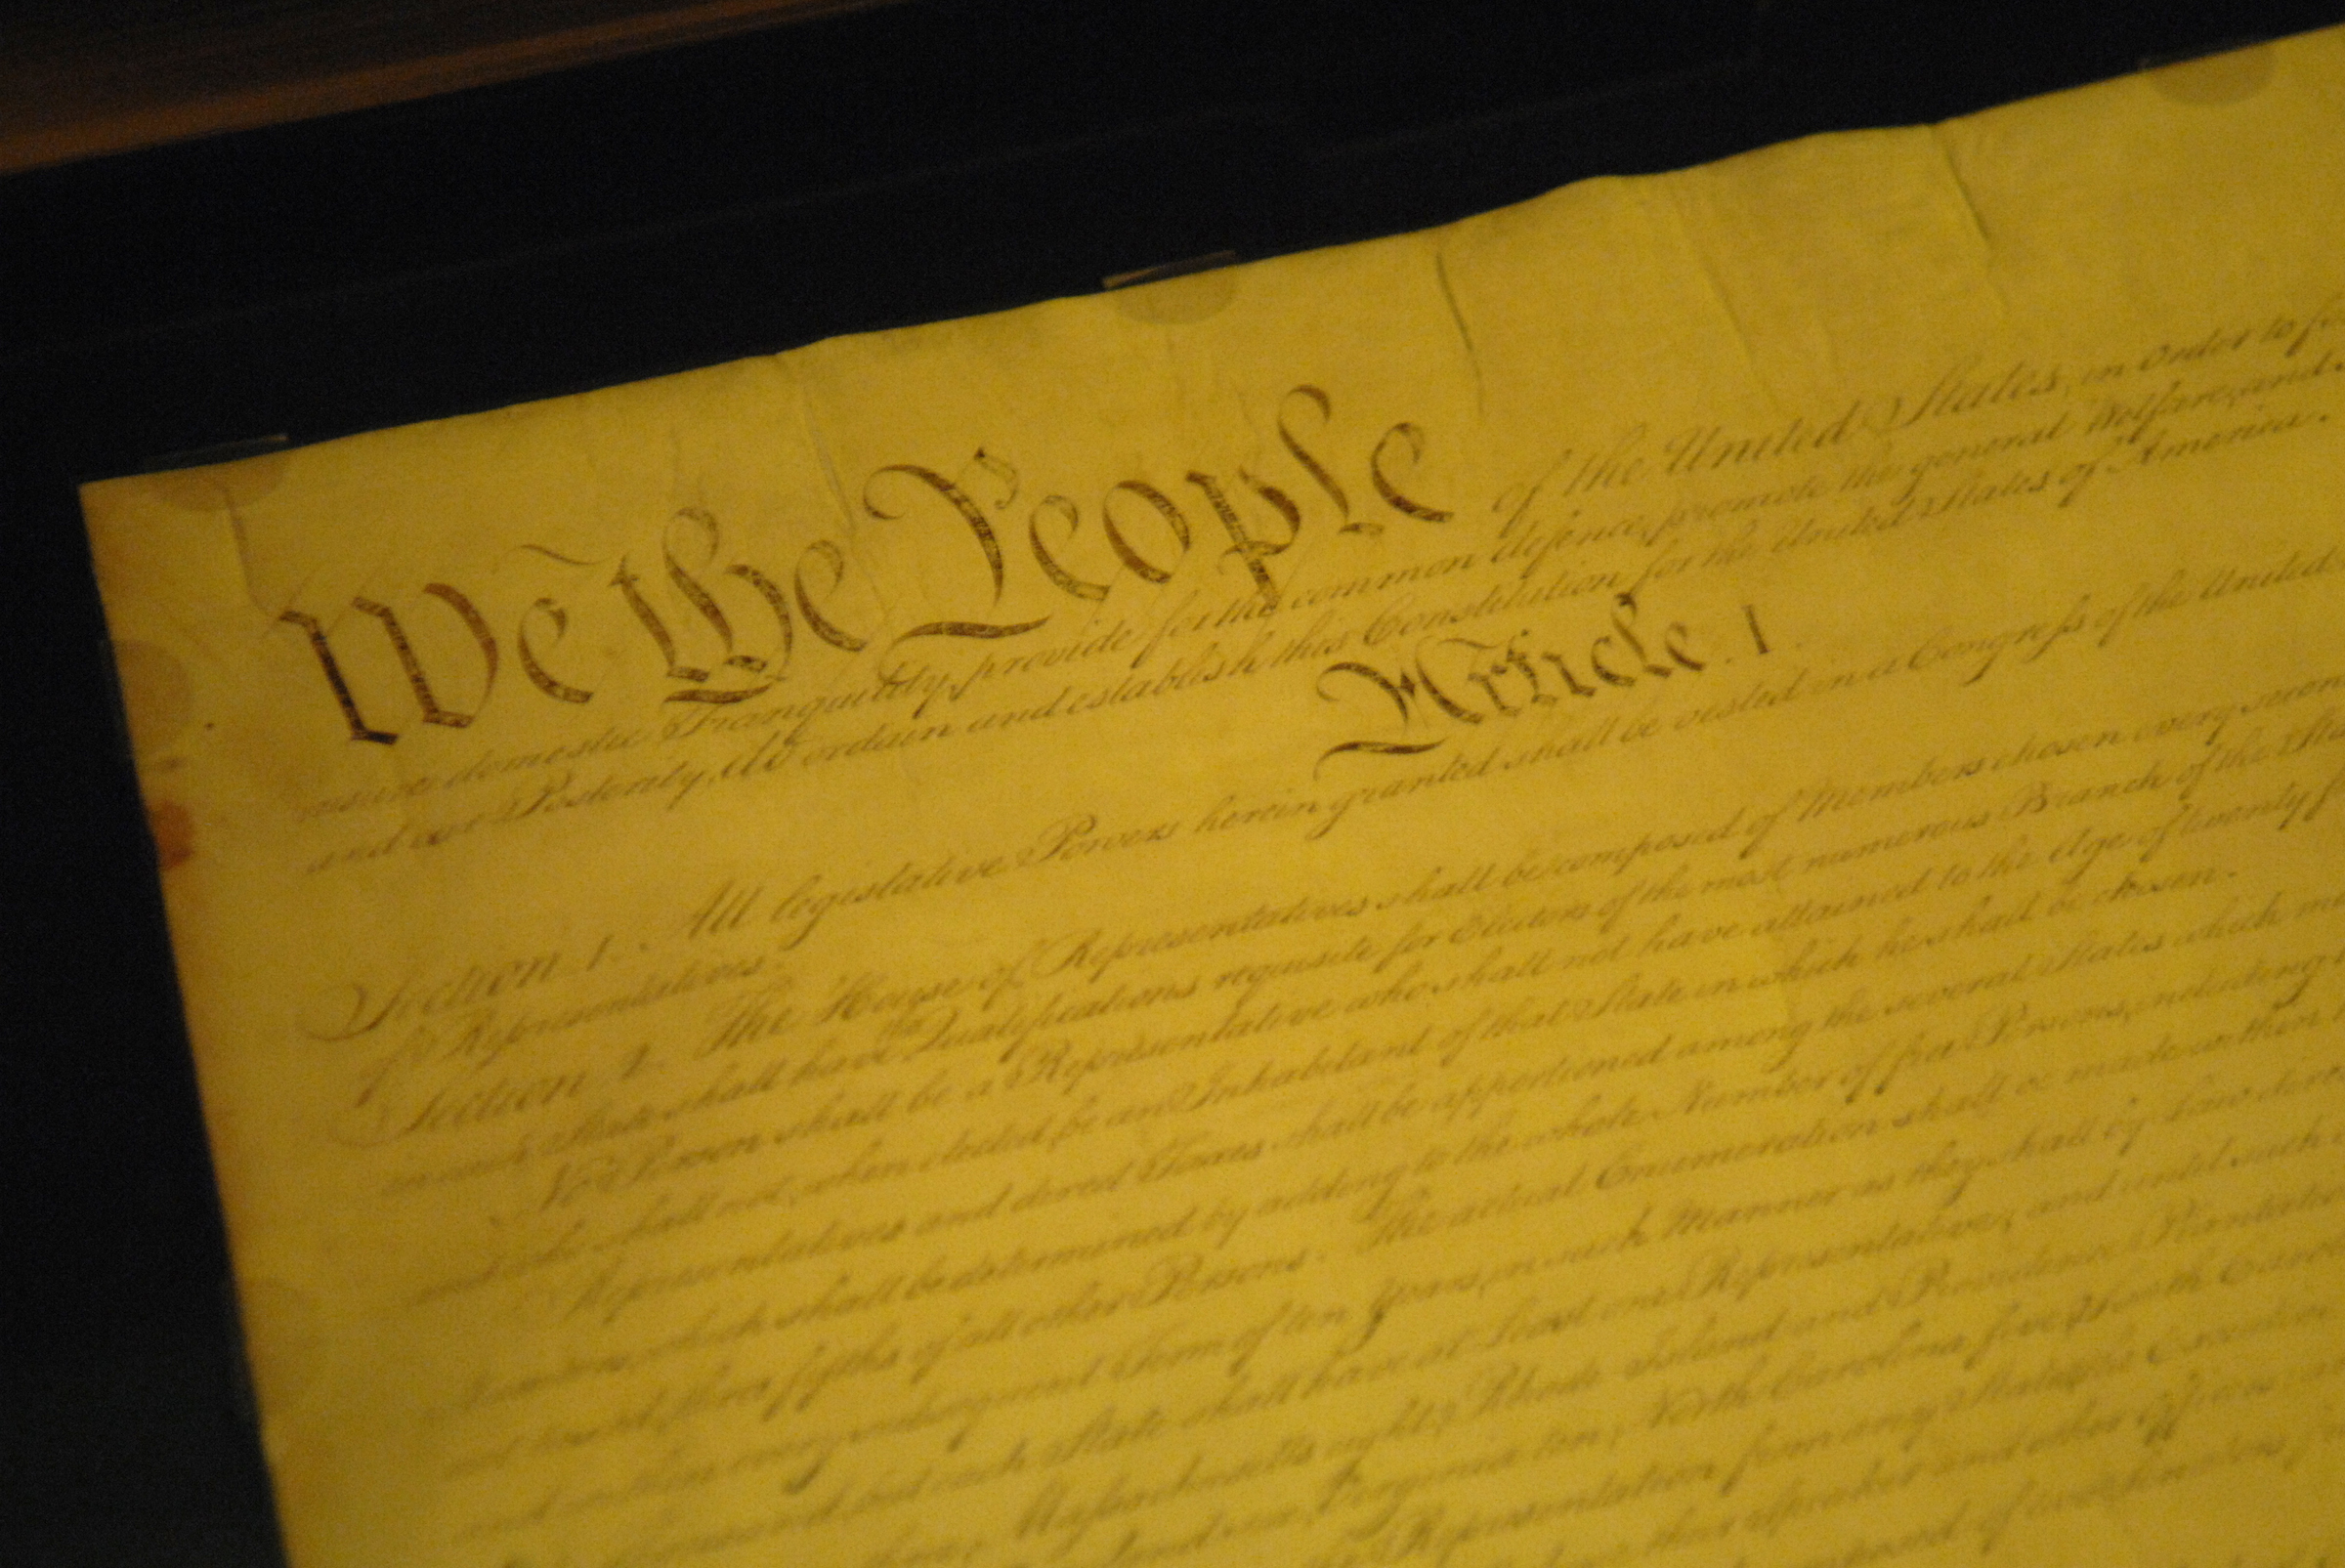 We the People of the United States, in Order to f
insure domestic Tranquility, provide for the common defence, promote the general Welfare, and
and our Posterity, do ordain and establish this Constitution for the United States of America.
Article. I.
Section. 1. All legislative Powers herein granted shall be vested in a Congress of the United
of Representatives.
Section. 2. The House of Representatives shall be composed of Members chosen every second
in each State shall have the Qualifications requisite for Electors of the most numerous Branch of the State
No Person shall be a Representative who shall not have attained to the Age of twenty f
and who shall not, when elected, be an Inhabitant of that State in which he shall be chosen.
Representatives and direct Taxes shall be apportioned among the several States which m
which shall be determined by adding to the whole Number of free Persons, including
three fifths of all other Persons. The actual Enumeration shall be made within three
and within every subsequent Term of ten Years, in such Manner as they shall by Law direc
and each State shall have at Least one Representative; and until such
Massachusetts eight, Rhode Island and Providence Plantatio
Virginia ten, North Carolina five, South Caro
Representation from any State, the Executive
their Speaker and other Officers;
composed of two Senators